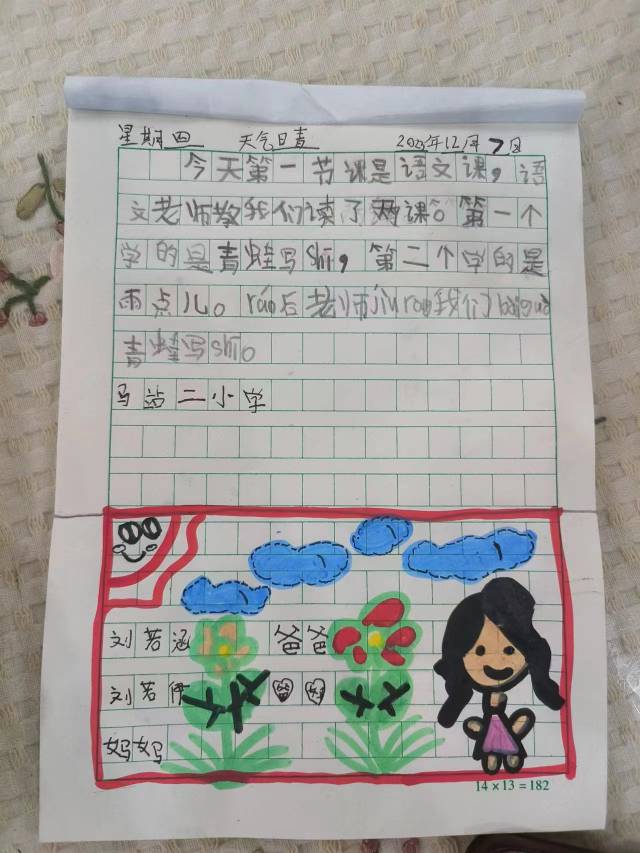 星期四 天气日青 2023年12月7日
今天第一节课是语文课，语
文老师教我们读了两课。第一个
学的是青蛙写shī，第二个学的是
雨点儿。ráo后老师jiù rang我们bèi
青蛙写shī。
马站二小学
刘若涵 爸爸
刘若
妈妈
14×13=182